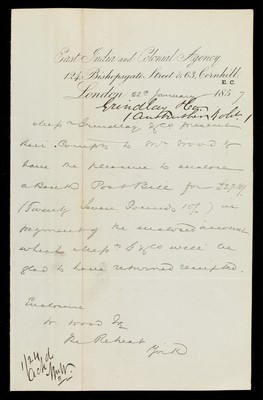 East India and Colonial Agency,
124, Bishopsgate Street & 63, Cornhill,
E.C.
London, 22d January 1857
Grindlay &
Messrs Grindlay & Co present
their Compts to Mr Wood &
have the pleasure to enclose
a Bank Post Bill for £27.10/
(Twenty Seven Pounds 10/) in
payment of the enclosed account
which Messrs G & Co will be
glad to have returned receipted.
Enclosure
W. Wood Esq
The Retreat
York
1/24
Ackd